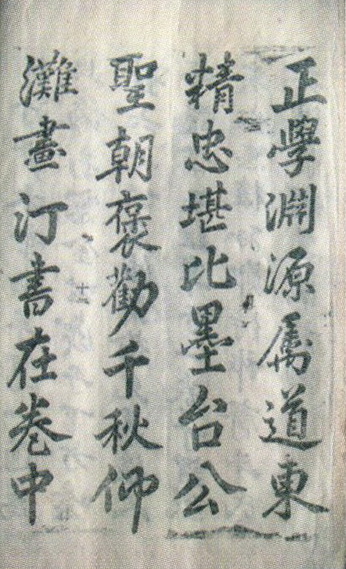 正學淵源屬道東
精忠堪比墨台公
聖朝褒勸千秋仰
灘畫汀書在卷中